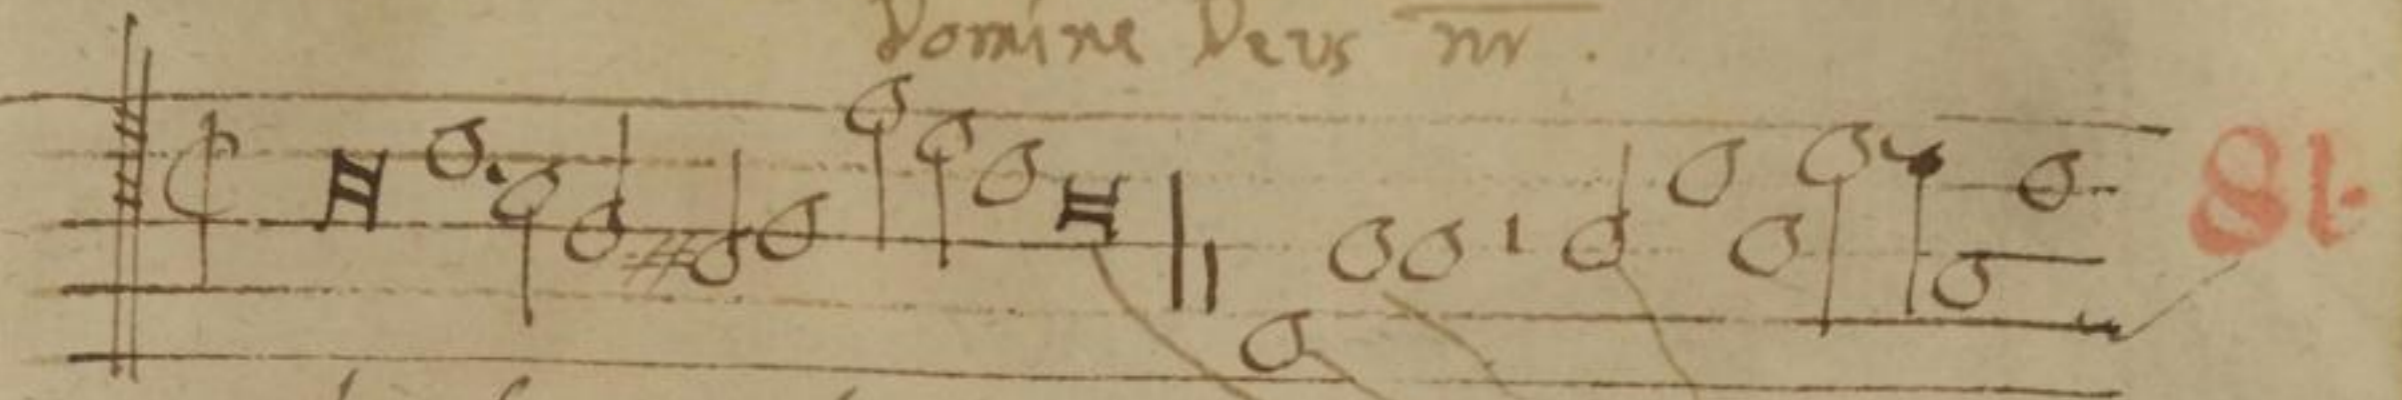 Domine Deus nr̄.
81.